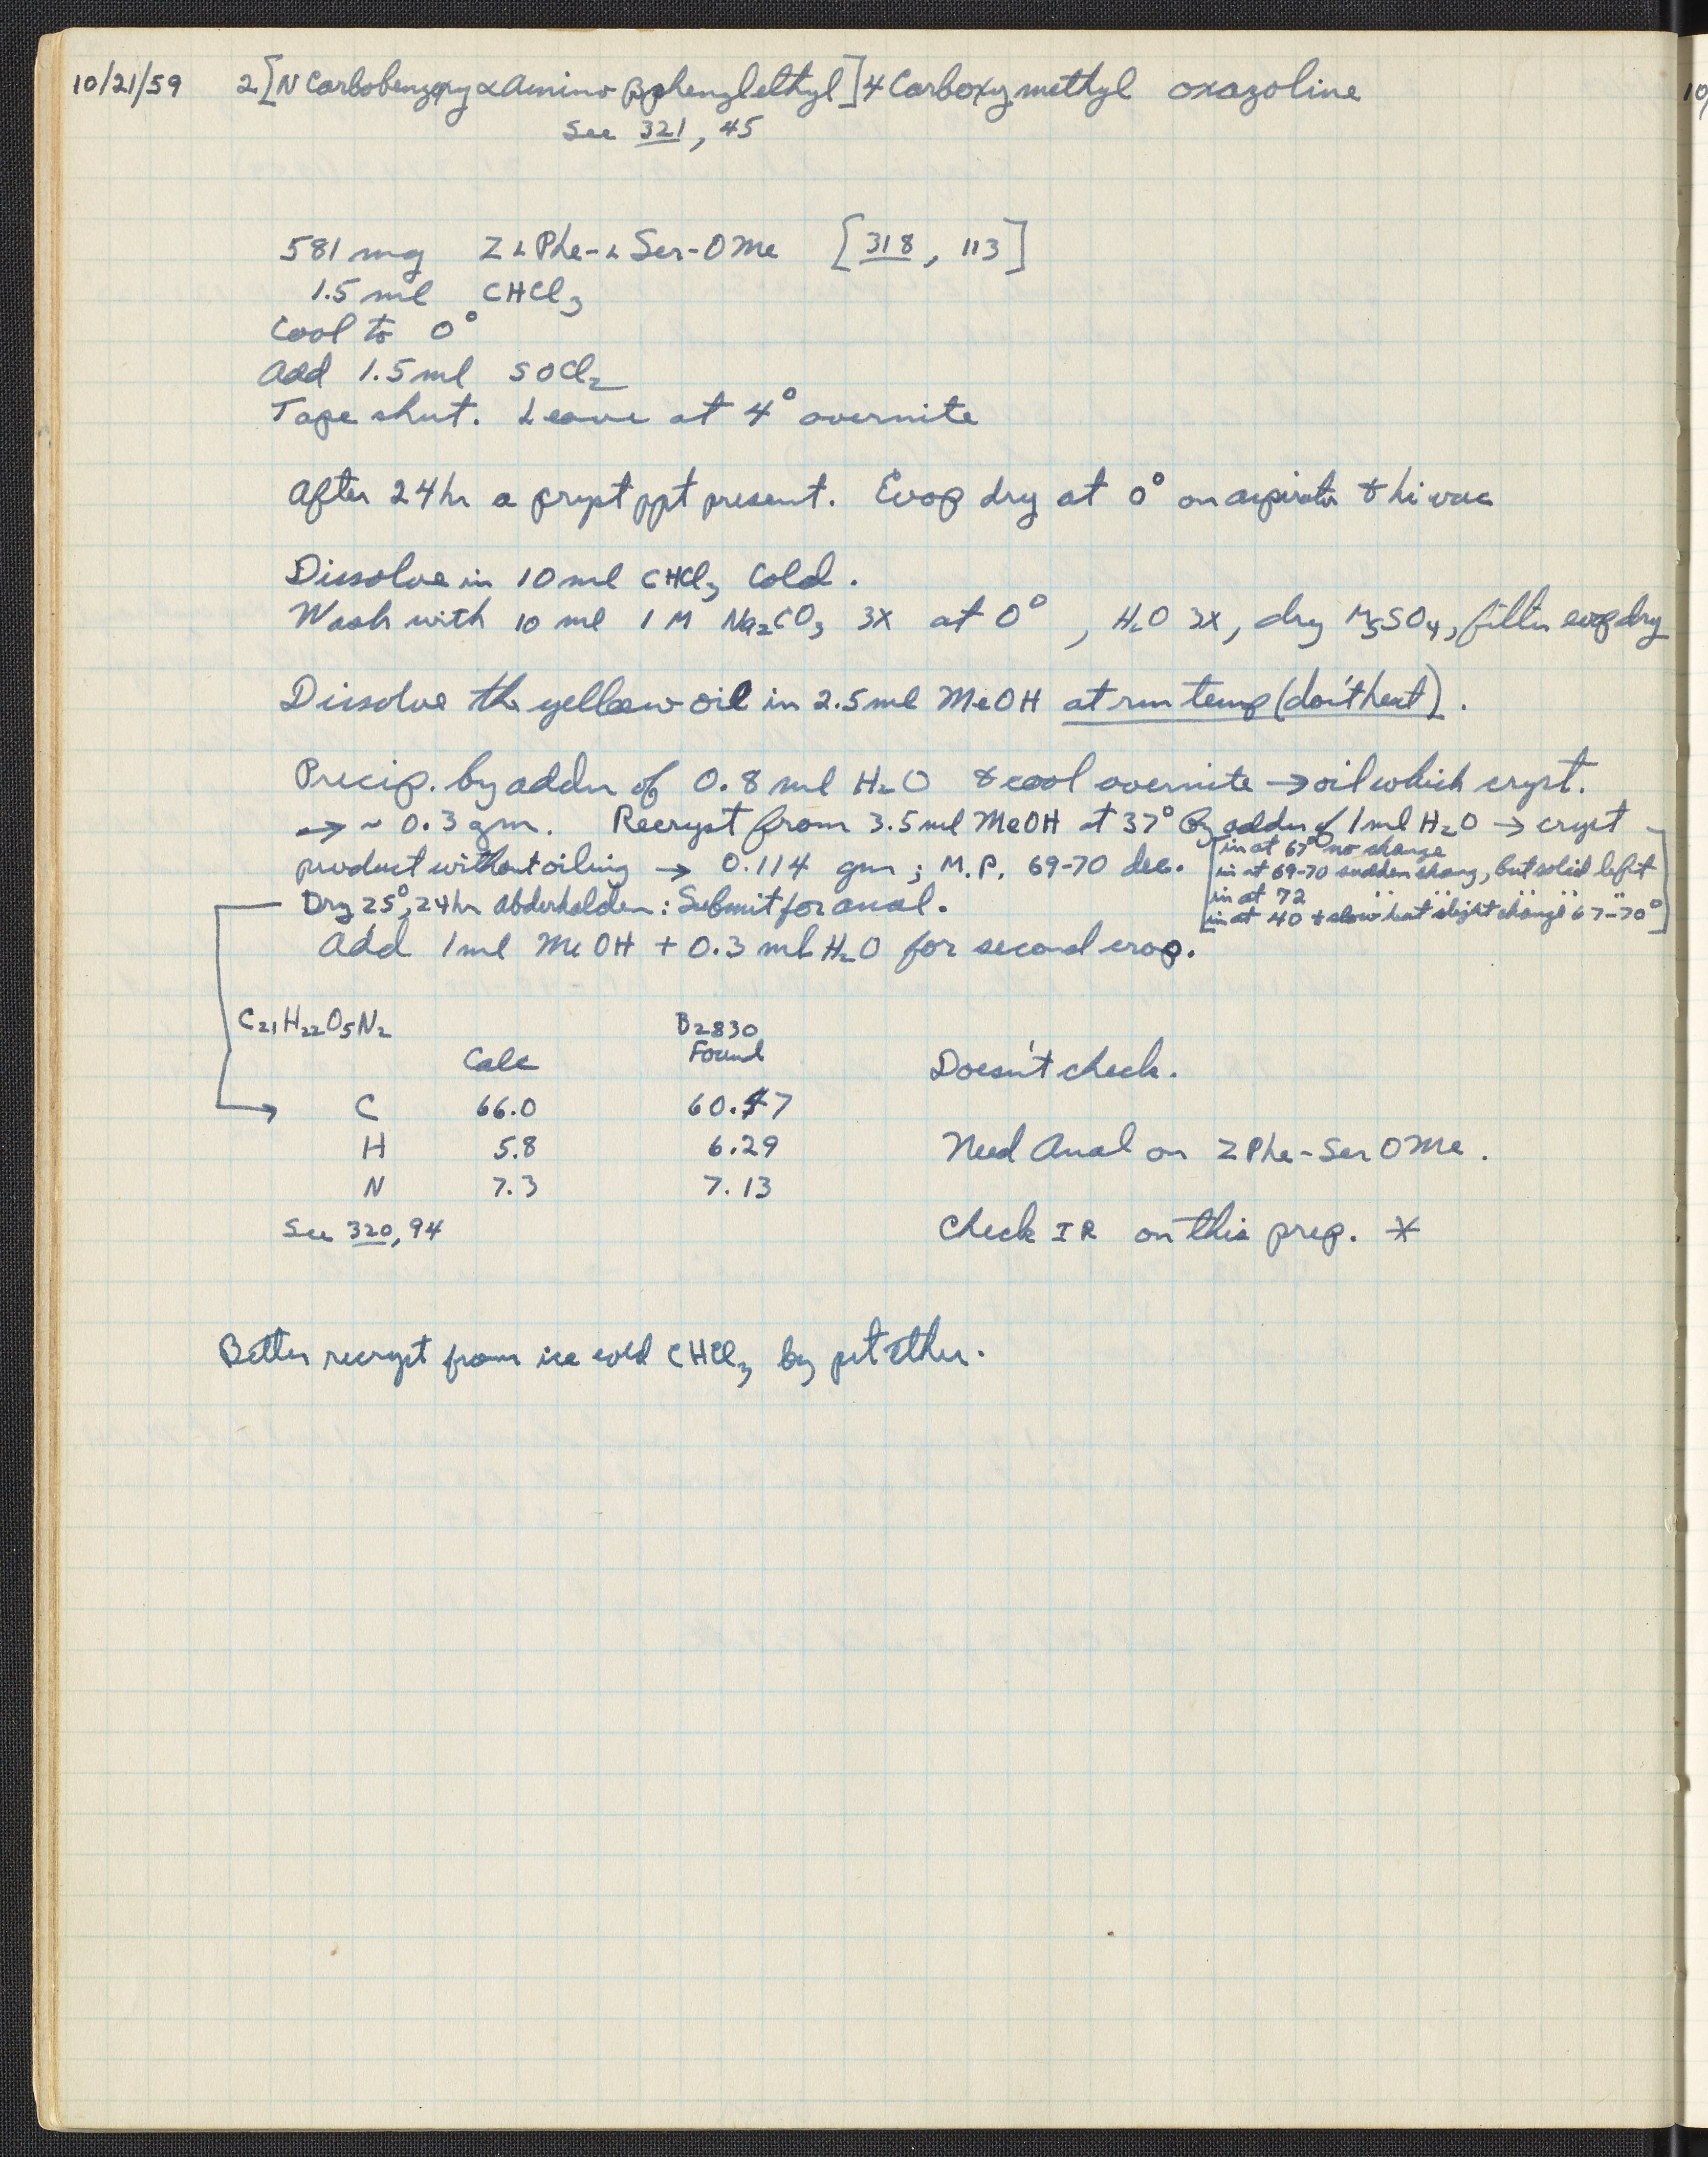 10/21/59 2[N Carbobenzoxy α Amino β phenylethyl] 4 Carboxy methyl oxazoline
See 321, 45
581 mg Z L Phe-L Ser-OMe [318, 113]
1.5 ml CHCl3
Cool to 0°
Add 1.5 ml SOCl2
Tape shut. Leave at 4° overnite
After 24 hr a cryst ppt present. Evap dry at 0° on aspirator & hi vac
Dissolve in 10 ml CHCl3 Cold.
Wash with 10 ml 1 M Na2CO3 3X at 0°, H2O 3X, dry MgSO4, filter evap dry
Dissolve the yellow oil in 2.5 ml MeOH at rm temp (don't heat).
Precip. by addn of 0.8 ml H2O & cool overnite → oil which cryst.
→ ~ 0.3 gm. Recryst from 3.5 ml MeOH at 37° By addn of 1 ml H2O → cryst
product without oiling → 0.114 gm; M.P. 69-70 dec.
[in at 67° no change
in at 69-70 sudden chang, but solid left
in at 72 " " " " "
in at 40 & slow heat slight change 67-70°]
Dry 25°, 24 hr abderhalden: Submit for anal.
Add 1 ml MeOH + 0.3 ml H2O for second crop.
C21H22O5N2 B2830
Calc Found
Doesn't check.
C 66.0 60.47
H 5.8 6.29 Need Anal on Z Phe-Ser OMe.
N 7.3 7.13
See 320, 94 Check IR on this prep. *
Better recryst from ice cold CHCl3 by pet ether.